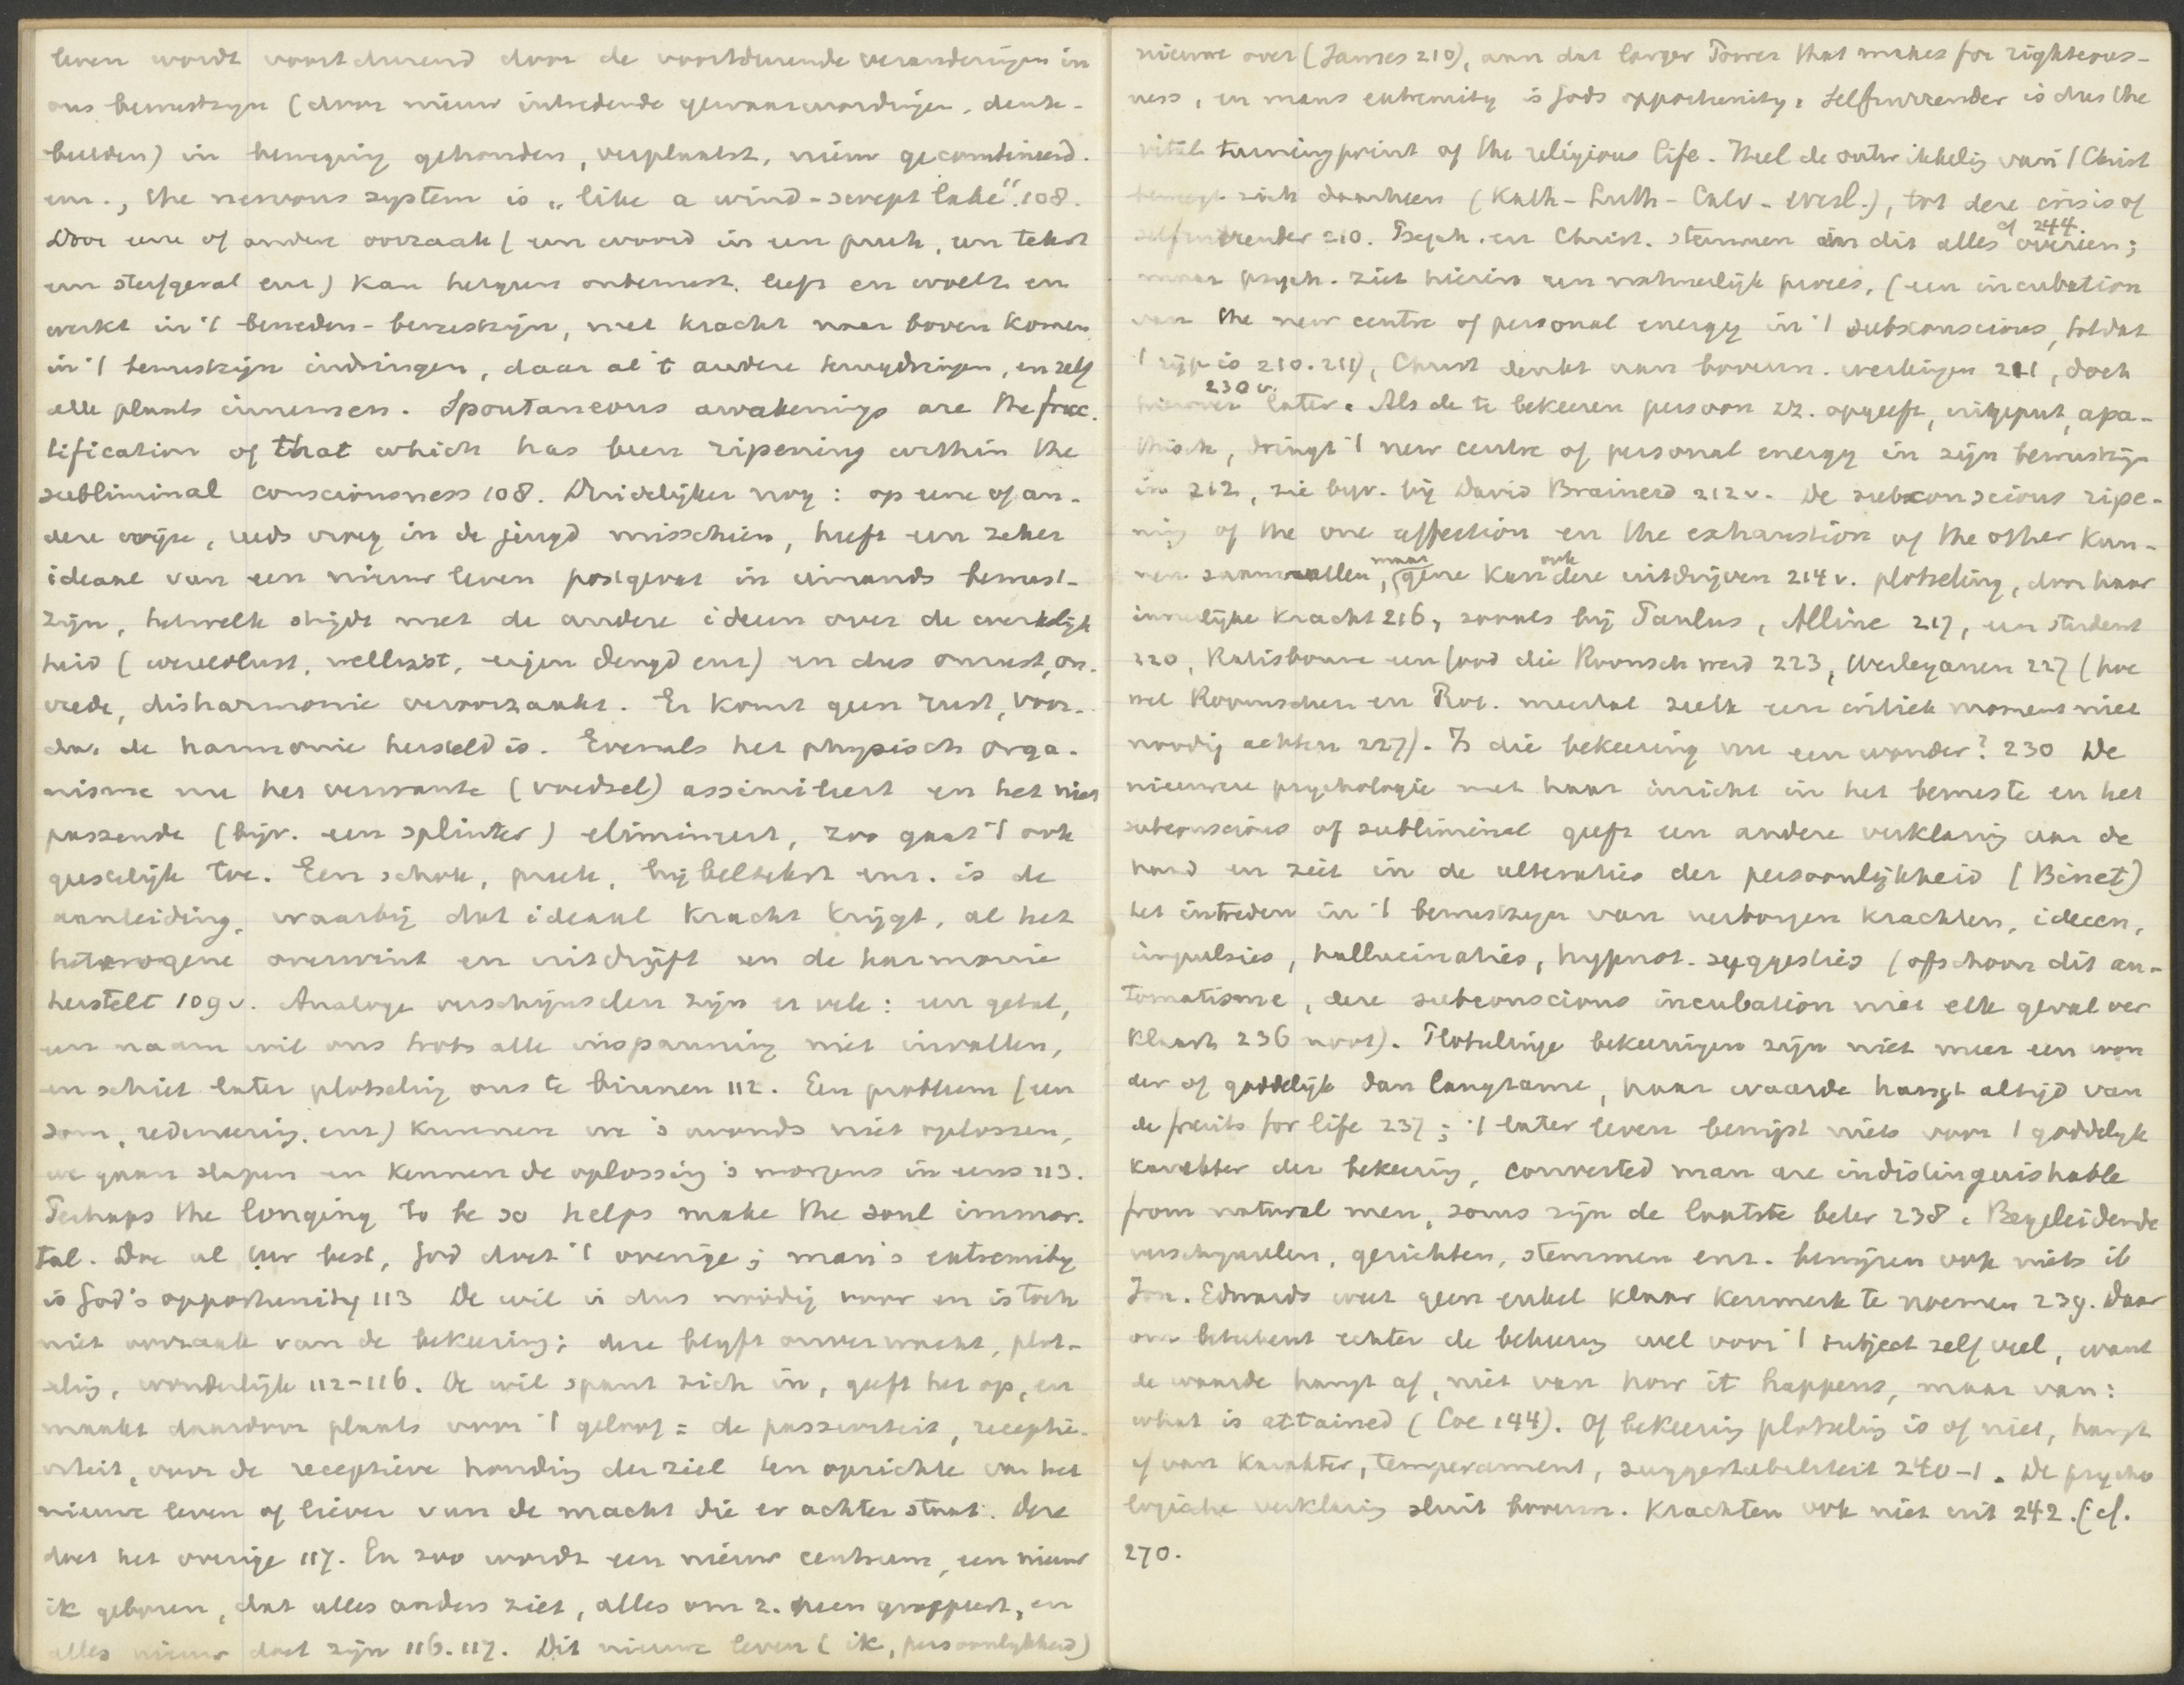 leven wordt voortdurend door de voortdurende veranderingen in
ons bewustzijn (door nieuw intredende gewaarwordingen, denk-
beelden) in beweging gehouden, verplaatst, nieuw gecombineerd.
enz., the nervous system is „like a wind-swept lake". 108.
Door eene of andere oorzaak (een woord in een preek, een tekst
een sterfgeval enz) kan hetgeen onbewust. leeft en woelt en
werkt in 't beneden-bewustzijn, met kracht naar boven komen
in 't bewustzijn indringen, daar al 't andere terugdringen, en zelf
alle plaats innemen. Spontaneous awakenings are the fruc.
tification of that which has been ripening within the
subliminal consciousness 108. Duidelijker nog: op eene of an-
dere wijze, reeds vroeg in de jeugd misschien, heeft een zeker
ideaal van een nieuw leven postgevat in iemands bewust-
zijn, hetwelk strijdt met de andere ideeen over de werkelijk
heid (wereldlust, wellust, eigen deugd enz) en dus onrust, on-
vrede, disharmonie veroorzaakt. Er komt geen rust, voor-
dat de harmonie hersteld is. Evenals het physisch orga-
nisme nu het verwante (voedsel) assimileert en het niet
passende (bijv. een splinter) elimineert, zoo gaat 't ook
geestelijk toe. Een schok, preek, bijbeltekst enz. is de
aanleiding, waarbij dat ideaal kracht krijgt, al het
heterogene overwint en uitdrijft en de harmonie
herstelt 109v. Analoge verschijnselen zijn er vele: een getal,
een naam wil ons trots alle inspanning niet invallen,
en schiet later plotseling ons te binnen 112. Een probleem (een
som, redeneering, enz) kunnen we 's avonds niet oplossen,
we gaan slapen en kennen de oplossing 's morgens in eens 113.
Perhaps the longing to be so helps make the soul immor-
tal. Doe al uw best, God doet 't overige; man's extremity
is God's opportunity 113 De wil is dus noodig voor en is toch
niet oorzaak van de bekeering; deze blijft onverwacht, plot-
selig, wonderlijk 112-116. De wil spant zich in, geeft het op, en
maakt daardoor plaats voor 't geloof = de passiviteit, recepti-
viteit, voor de receptieve houding der ziel ten opzichte van het
nieuwe leven of liever van de macht die er achter staat. Deze
doet het overige 117. En zoo wordt een nieuw centrum, een nieuw
ik geboren, dat alles anders ziet, alles om z. heen groepeert, en
alles nieuw doet zijn 116.117. Dit nieuwe leven (ik, persoonlijkheid)
nieuwe over (James 210), aan dat larger Power that makes for righteous-
ness, en mans extremity is Gods opportunity. Selfsurrender is dus the
vital turningpoint of the religious life. Heel de ontwikkeling van 't Christ
beweegt zich daarheen (Kath-Luth-Calv-Wesl.), tot deze crisis of
selfsurrender 210. Psych. en Christ. stemmen in dit alles overeen; cf 244.
maar psych. ziet hierin een natuurlijk proces, (een incubation
van the new centre of personal energy in 't subconscious, totdat
't rijp is 210.211), Christ denkt aan bovenn. werkingen 211, doch
hierover later. 230v. Als de te bekeeren persoon zz. opgeeft, uitgeput, apa-
thisch, dringt 't new centre of personal energy in zijn bewustzijn
in 212, zie bijv. bij David Brainerd 212v. De subconscious ripe-
ning of the one affection en the exhaustion of the other kun-
nen samenvallen, maar gene kan ook deze uitdrijven 214v. plotseling, door haar
innerlijke kracht 216, zooals bij Paulus, Alline 217, een student
220, Ratisbonne een Jood die Roomsch werd 223, Wesleyanen 227 (hoe
wel Roomschen en Prot. meestal zulk een critiek moment niet
noodig achten 227). Is die bekeering nu een wonder? 230 De
nieuwere psychologie met haar inzicht in het bewuste en het
subconscious of subliminal geeft een andere verklaring aan de
hand en ziet in de alteraties der persoonlijkheid (Binet)
het intreden in 't bewustzijn van verborgen krachten, ideeen,
impulsies, hallucinaties, hypnot. suggesties (ofschoon dit au-
tomatisme, deze subconscious incubation niet elk geval ver
klaart 236 noot). Plotselinge bekeeringen zijn niet meer een won
der of goddelijk dan langzame, haar waarde hangt altijd van
de fruits for life 237; 't later leven bewijst niets voor 't goddelijk
karakter der bekeering, converted man are indistinguishable
from natural men, soms zijn de laatste beter 238. Begeleidende
verschijnselen, gezichten, stemmen enz. bewijzen ook niets ib
Jon. Edwards weet geen enkel klaar kenmerk te noemen 239. Daar
om beteekent echter de bekeering wel voor 't subject zelf veel, want
de waarde hangt af, niet van how it happens, maar van:
what is attained (Coe 144). Of bekeering plotseling is of niet, hangt
af van karakter, temperament, suggestibiliteit 240-1. De psycho
logische verklaring sluit bovenn. krachten ook niet uit 242. (cf.
270.